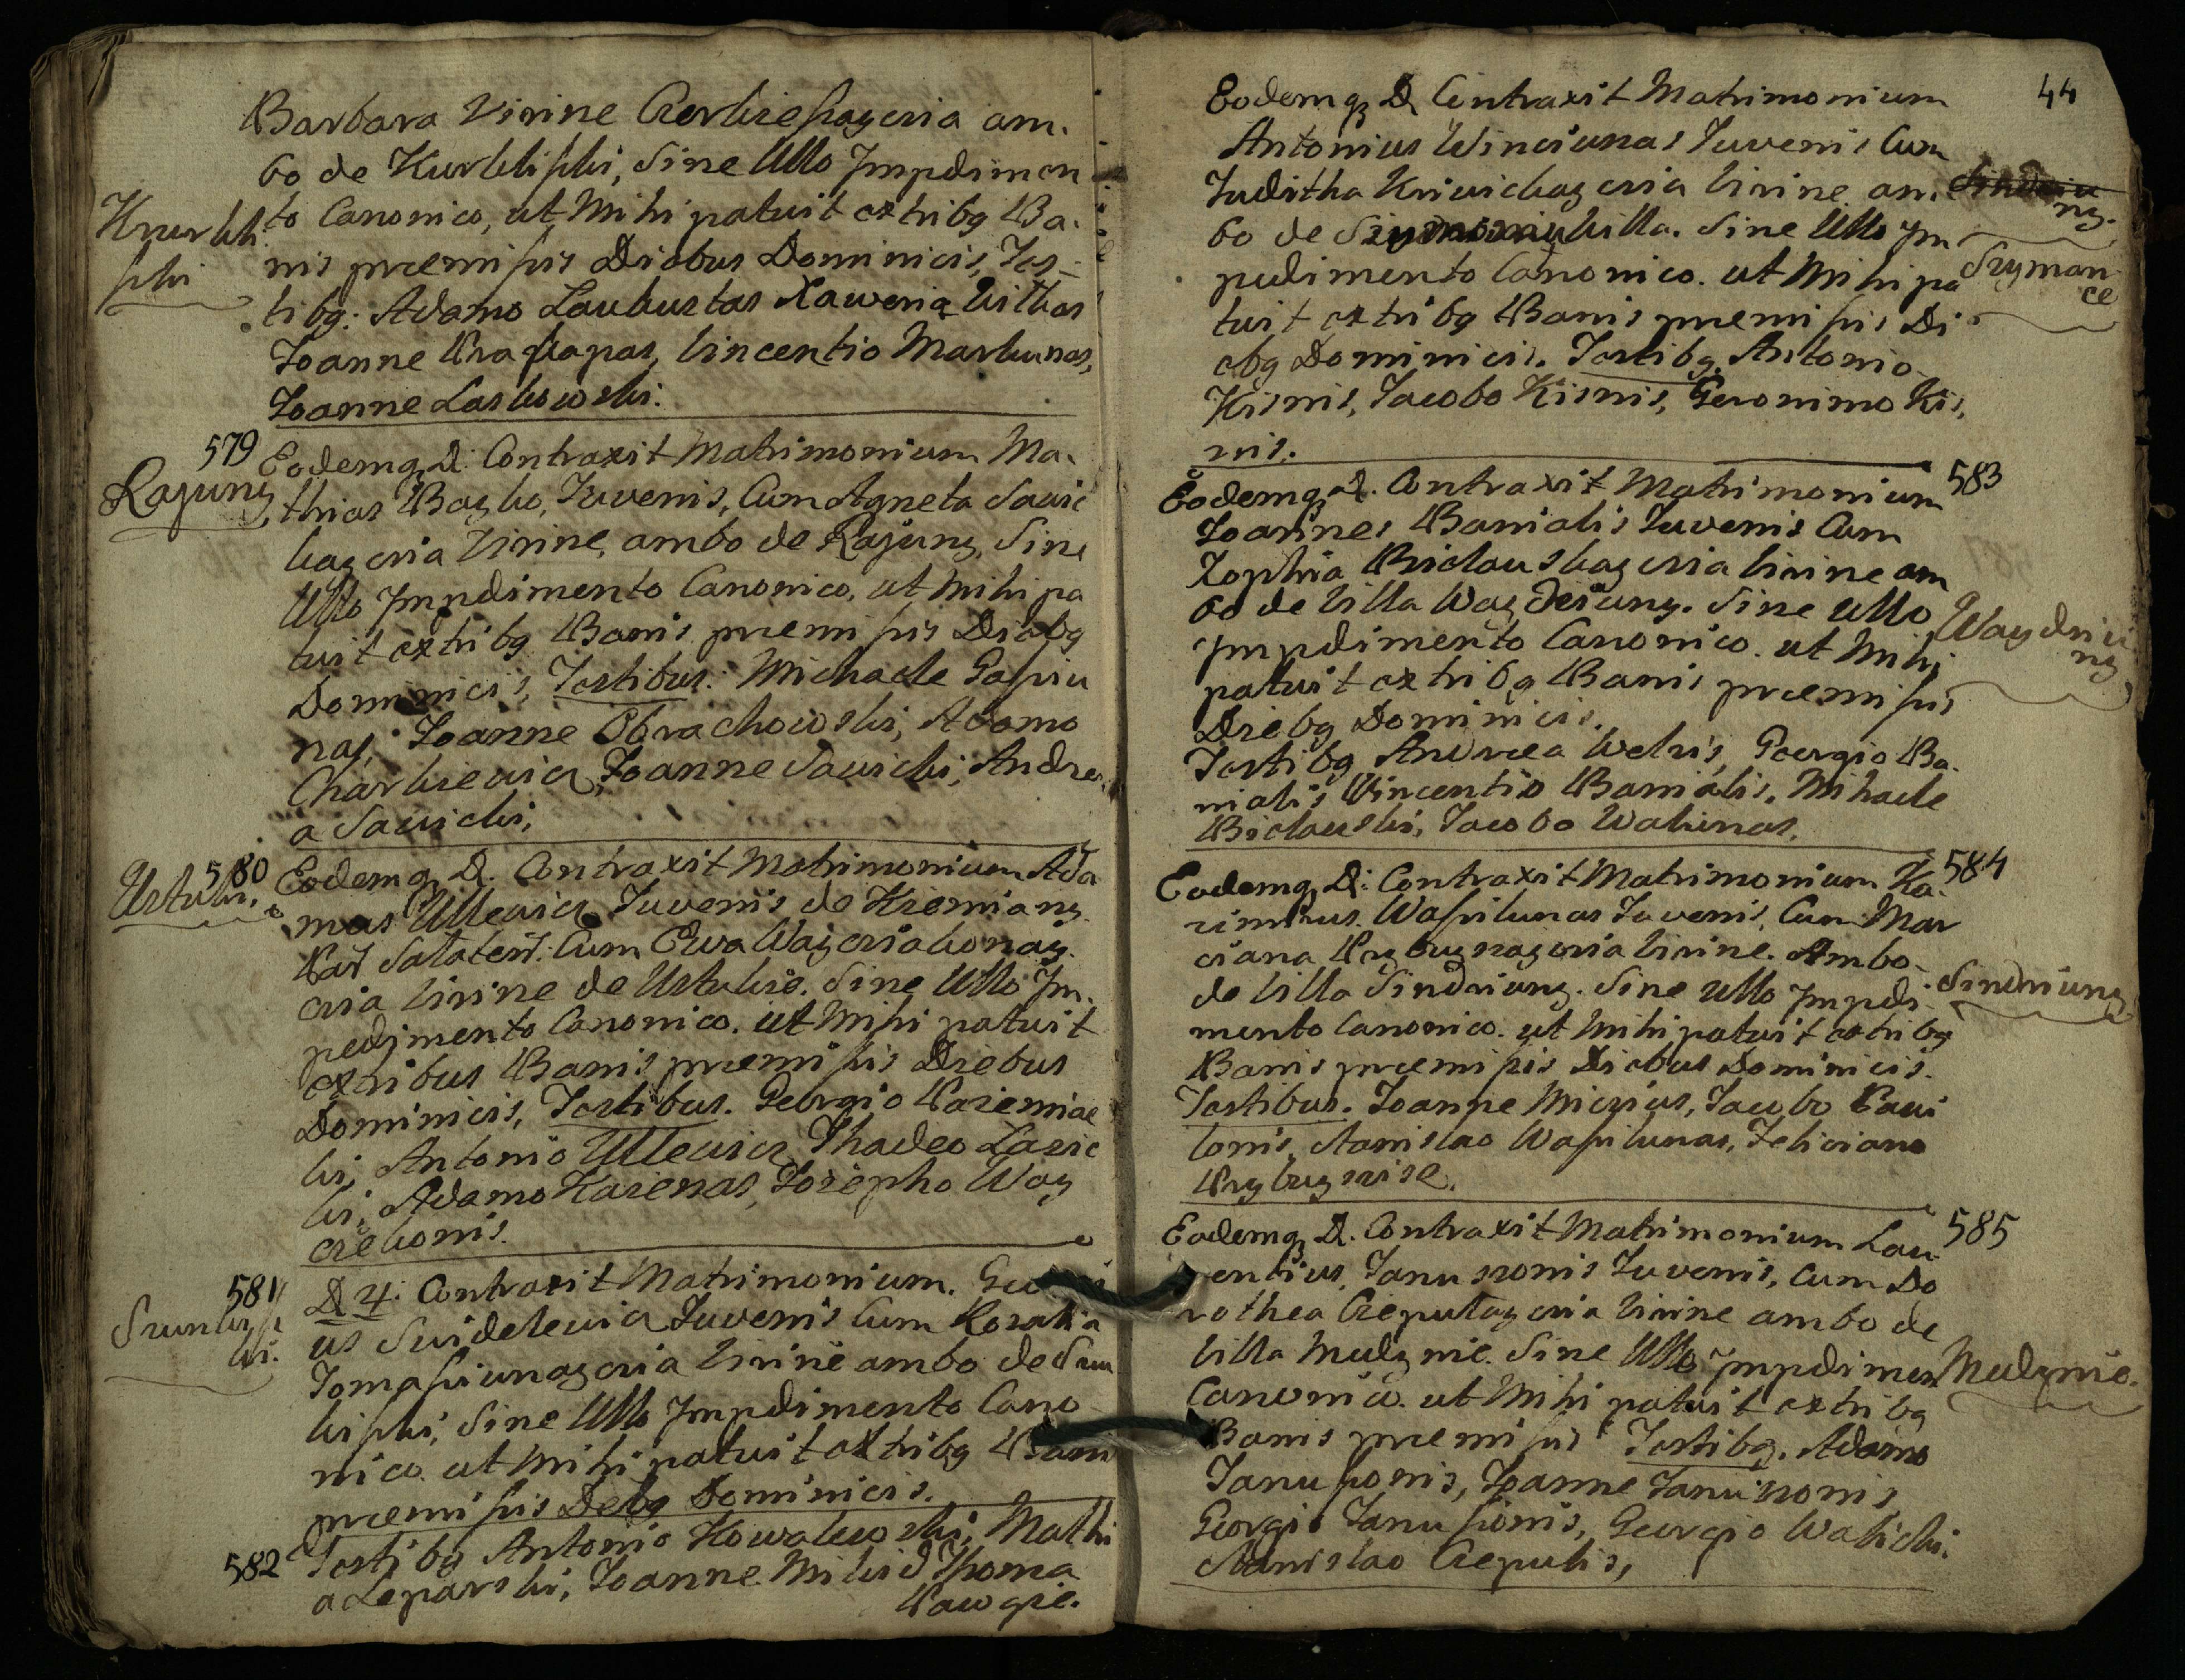 Barbara Virine Czerkiesaycia am.
bo de Kurkliszki, Sine Ullo Impdimen
Knurkli
szki
to Canonico, ut Mihi patuit ex tribq Ba.
nis præmissis Diebus Dominicis, Tes
tibq: Adamo Laukustas Xaweriq Witkas
Joanne Vincentio Markunas,
Joanne Laskowski.
579
Rajuny
Eodemq D: Contraxit Matrimonium Ma.
thias Bayko, Juvenis, Cum Agneta Sawic
kayciа Virine, ambo de Rajuny, Sine
Ullo Impdimento Canonico, ut Mihi pa
tuit ex tribq Banis præmissis Diebq
Dominicis, Testibus: Michaele Gasiu
nas, Joanne Obrachowski, Adamo
Charkiewicz, Joanne Sawicki, Andre
a Sawicki,
580
Ustuki.
Eodemq D. Contraxit Matrimonium Ada
mas Ullewicz Juvenis de Kiemiany
Par Salaten: Cum Ewa Wayciakonay
cia Virine de Ustukie. Sine Ullo Im
pedimento Canonico. ut Mihi patuit
ex tribus Banis præmissis Diebus
Dominicis, Testibus. Georgio Paziemiec
ki, Antonio Ullewicz, Thadeo Lazic
ki, Adamo Kazienas, Josepho Way
ciekonis.
581
Szunkisz
ki.
D 4: Contraxit Matrimonium. Geo
us Swidelewicz Juvenis Cum Rozalia
Tomasiunaycia Virine ambo de Szun
kiszki, Sine Ullo Impdimento Cano
nico ut Mihi patuit ex tribq Bani
præmissis Debq Dominicis.
582
Testibq Antonio Kowalewski, Mathi
a Leparski, Joanne Mikid Thoma
Pawgie.
44
Eodemq D Contraxit Matrimonium
Antonius Winciunas Juvenis Cum
Juditha Kriwickaycia Virine am.
Sindriu
ny.
bo de Villa. Sine Ullo Im
pedimento Canonico. ut Mihi pa
Szyman
ce
tuit ex tribq Banis præmissis Di
ebq Dominicis. Testibq. Antonio
Kisnis, Jacobo Kisnis, Geronimo Kis,
nis.
583
Eodemq D. Contraxit Matrimonium
Joannes Banialis Juvenis Cum
Zophia Bielauskaycia Virine am
bo de Villa Waydziuny. Sine Ullo
Waydziu
ny
Impdimento Canonico. ut Mihi
patuit ex tribq Banis præmissis
Diebq Dominicis.
Testibq Andrea Welris, Georgio Ba.
nialis Wincentio Banialis, Mihaele
Bielauski, Jacobo Wakunas,
584
Eodemq D: Contraxit Matrimonium Ka
zimirus Wasilunas Juvenis, Cum Mar
ciana Virine. Ambo
de Villa Sindriuny. Sine Ullo Impdi
Sindriuny
mento Canonico. ut Mihi patuit ex tribq
Banis præmissis Diebus Dominicis.
Testibus. Joanne Miezius, Jacobo Pawi
lonis, Stanislao Wasilunas, Feliciano
585
Eodemq D. Contraxit Matrimonium Lau
rentius, Januszonis Juvenis, Cum Do
rothea Czepulaycia Virine ambo de
Villa Medynie. Sine Ullo Impdimen
Medynie.
Canonico. ut Mihi patuit ex tribq
Banis præmissis Testibq. Adamo
Janussonis, Joanne Januszonis
Georgio Janussonis, Georgio Walicki.
Stanislao Czepulis,